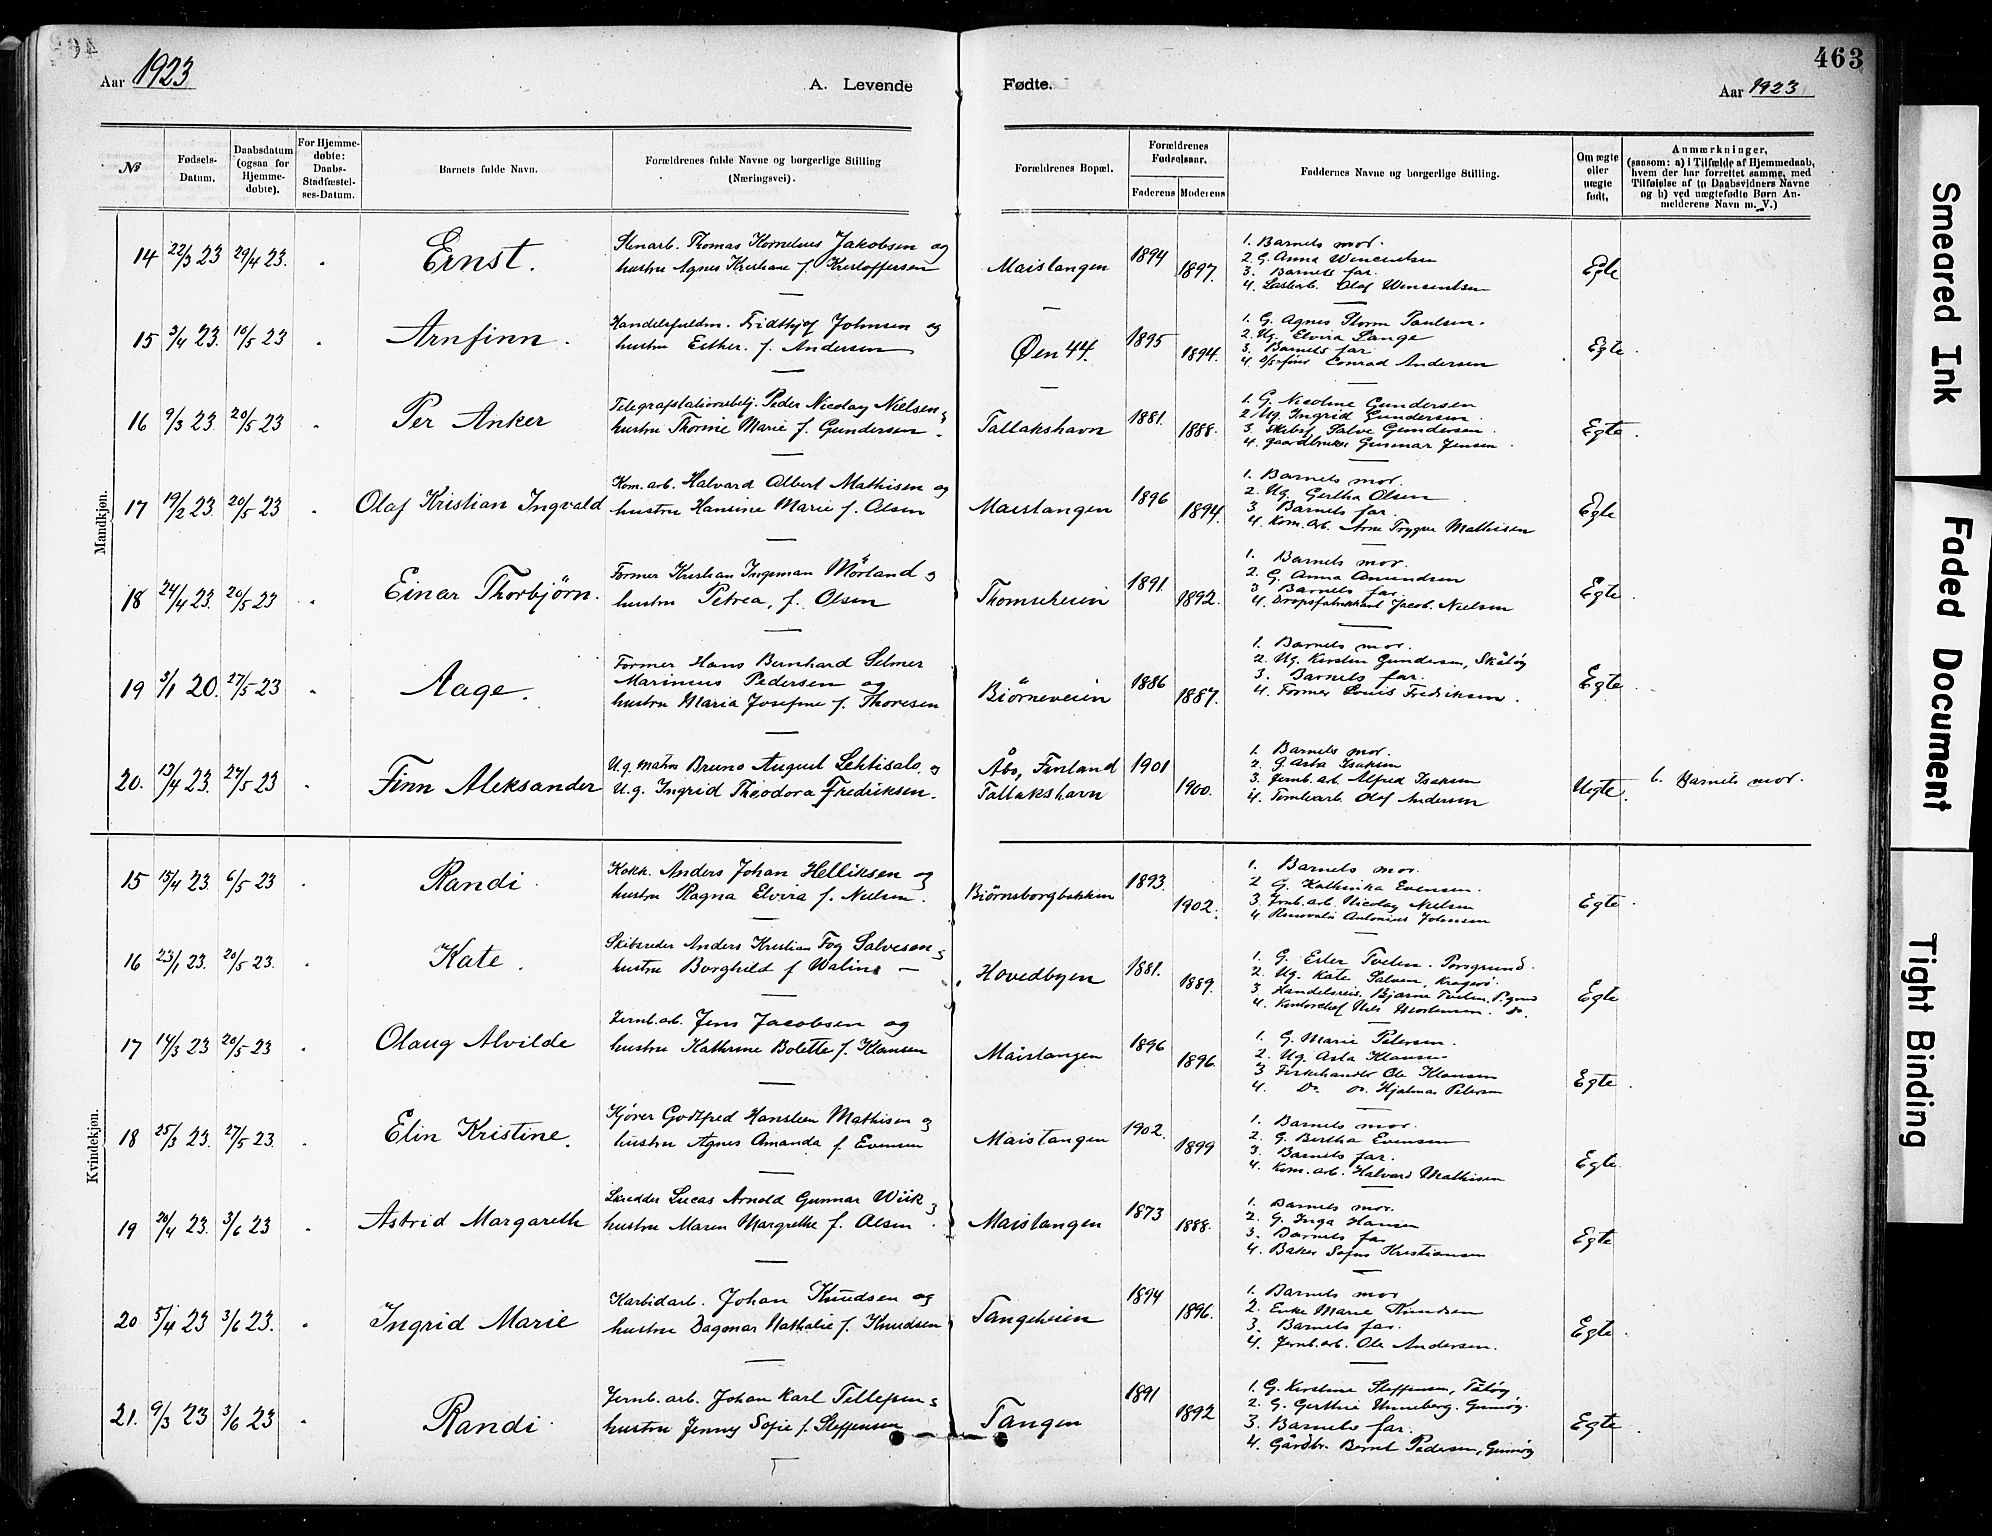 463
Aar 1923
A. Levende
Fødte.
Aar 1923
№
Fødsels-
Datum.
Daabsdatum
(ogsaa for
Hjemme-
døbte).
For Hjemme-
døbte:
Daabs-
Stadfæstel-
ses-Datum.
Barnets fulde Navn.
Forældrenes fulde Navne og borgerlige Stilling
(Næringsvei).
Forældrenes Bopæl.
Forældrenes
Fødselsaar.
Faderens
Moderens
Faddernes Navne og borgerlige Stilling.
Om ægte
eller
uægte
født.
Anmærkninger,
(saasom: a) i Tilfælde af Hjemmedaab,
hvem der har forrettet samme, med
Tilføielse af to Daabsvidners Navne
og b) ved uægtefødte Børn An-
melderens Navn m. V.)
Mandkjøn.
14 22/3 23 29/4 23. Ernst.
Stenarb. Thomas Kornelius Jakobsen og
hustru Agnes Kristiane f. Kristoffersen
Maistangen 1894 1897.
1. Barnets mor.
2. G. Anna Wincentsen
3. Barnets far.
4. Losearb. Olaf Wincentsen
Egte
15 3/4 23. 10/5 23 Arnfinn.
Handelsfuldm. Fridthjof Johnsen og
hustru Esther f. Andersen
Øen 44. 1895 1894.
1. G. Agnes Storm Paulsen.
2. Ug. Elvira Lange
3. Barnets far
4. Conrad Andersen
Egte
16 9/3 23. 20/5 23 Per Anker
Telegrafstationsbetj. Peder Nicolay Nielsen
hustru Thorine Marie f. Gundersen
Tallakshavn 1881. 1888.
1. G. Nicoline Gundersen
2. Ug. Ingrid Gundersen.
3. Skibsf. Salve Gundersen.
4. Gaardbruker Gunnar Jensen
Egte
17 19/2 23. 20/5 23 Olaf Kristian Ingvald
Kom. arb. Halvard Albert Mathisen og
hustru Hansine Marie f. Olsen
Maistangen 1896 1894.
1. Barnets mor.
2. Ug. Gertha Olsen
3. Barnets far.
4. Kom. arb. Arne Trygve Mathisen
Egte
18 24/4 23. 20/5 23 Einar Thorbjörn.
Former Kristian Ingeman Mörland og
hustru Petrea, f. Olsen
Thomseheien 1891. 1892.
1. Barnets mor.
2. G. Anna Amundsen
3. Barnets far.
4. Dropsfabrikant Jacob. Nielsen
Egte
19 3/1 20. 27/5 23 Aage.
Former Hans Bernhard Selmer
Marinius Pedersen og
hustru Maria Josefine f. Thoresen
Biörneveien 1886 1887.
1. Barnets mor.
2. Ug. Kirsten Gundersen, Skåtøy
3. Barnets far.
4. Former Louis Fredriksen.
Egte
20. 13/4 23. 27/5 23 Finn Aleksander
U.g. matros Bruno August Lehtisalo og
U.g. Ingrid Theodora Fredriksen.
Åbo, Finland
Tallakshavn
1901 1900.
1. Barnets mor.
2. G. Asta Isaksen
3. Jernb. arb. Alfred Isaksen
4. Tomtearb. Olaf Andersen
Uegte.
b. Barnets mor.
Kvindekjøn.
15 15/4 23. 6/5 23 Randi.
Kokk. Anders Johan Helliksen og
hustru Ragna Elvira f. Nielsen.
Biörnsborgbakken 1893. 1902.
1. Barnets mor.
2. G. Kathinka Evensen.
3. Jernb. arb. Nicolay Nielsen
4. Antonius Johnsen
Egte
16 23/1 23. 20/5 23. Kate.
Skibsreder Anders Kristian Fog Salvesen
hustru Borghild f. Walins
Hovedbyen 1881. 1889.
1. G. Ester Tveten. Porsgrund.
2. Ug. Kate Salvesen, Kragerö.
3. Handelsreis. Bjarne Tveten, P.grund
4. Kontorchef Nils Mortensen. do.
Egte
17 14/3 23 20/5 23 Olaug Alvilde
Jernb. arb. Jens Jacobsen og
hustru Kathrine Bolette f. Klausen
Maistangen 1896 1896.
1. G. Marie Petersen.
2. Ug. Asta Klausen
3 Fiskehandler Ole Klausen
4. Do. do. Hjalmar Petersen
Egte
18 25/3 23. 27/5 23. Elin Kristine.
Kjörer Godtfred Hansteen Mathisen og
hustru Agnes Amanda f. Evensen
Maistangen 1902. 1899
1. Barnets mor.
2. G. Bertha Evensen
3. Barnets far.
4. Kom. arb. Halvard Mathisen
Egte
19 20/4 23. 3/6 23 Astrid Margareth
Skredder Lucas Arnold Gunnar Wiik
hustru Maren Margrethe f. Olsen
Maistangen 1873 1888.
1. Barnets mor.
2. G. Inga Hansen
3. Barnets far
4. Baker Sofus Kristiansen
Egte
20 5/4 23 3/6 23. Ingrid Marie
Karbidarb. Johan Knudsen og
hustru Dagmar Nathalie f. Knudsen
Tangeheien 1894 1896.
1. Barnets mor
2. Enke Marie Knudsen
3. Barnets far.
4. Jernb. arb. Ole Andersen.
Egte
21. 9/3 23 3/6 23 Randi.
Jernb. arb. Johan Karl Tellefsen
hustru Jenny Sofie f. Steffensen
Tangen 1891 1892
1. G. Kirstine Steffensen, Tåtøy
2. G. Gerthie Unneberg. Gumöy.
3. Barnets far.
4. Gårdbr. Bernt Pedersen, Gumöy
Egte
Smeared Ink
Faded Document
Tight Binding